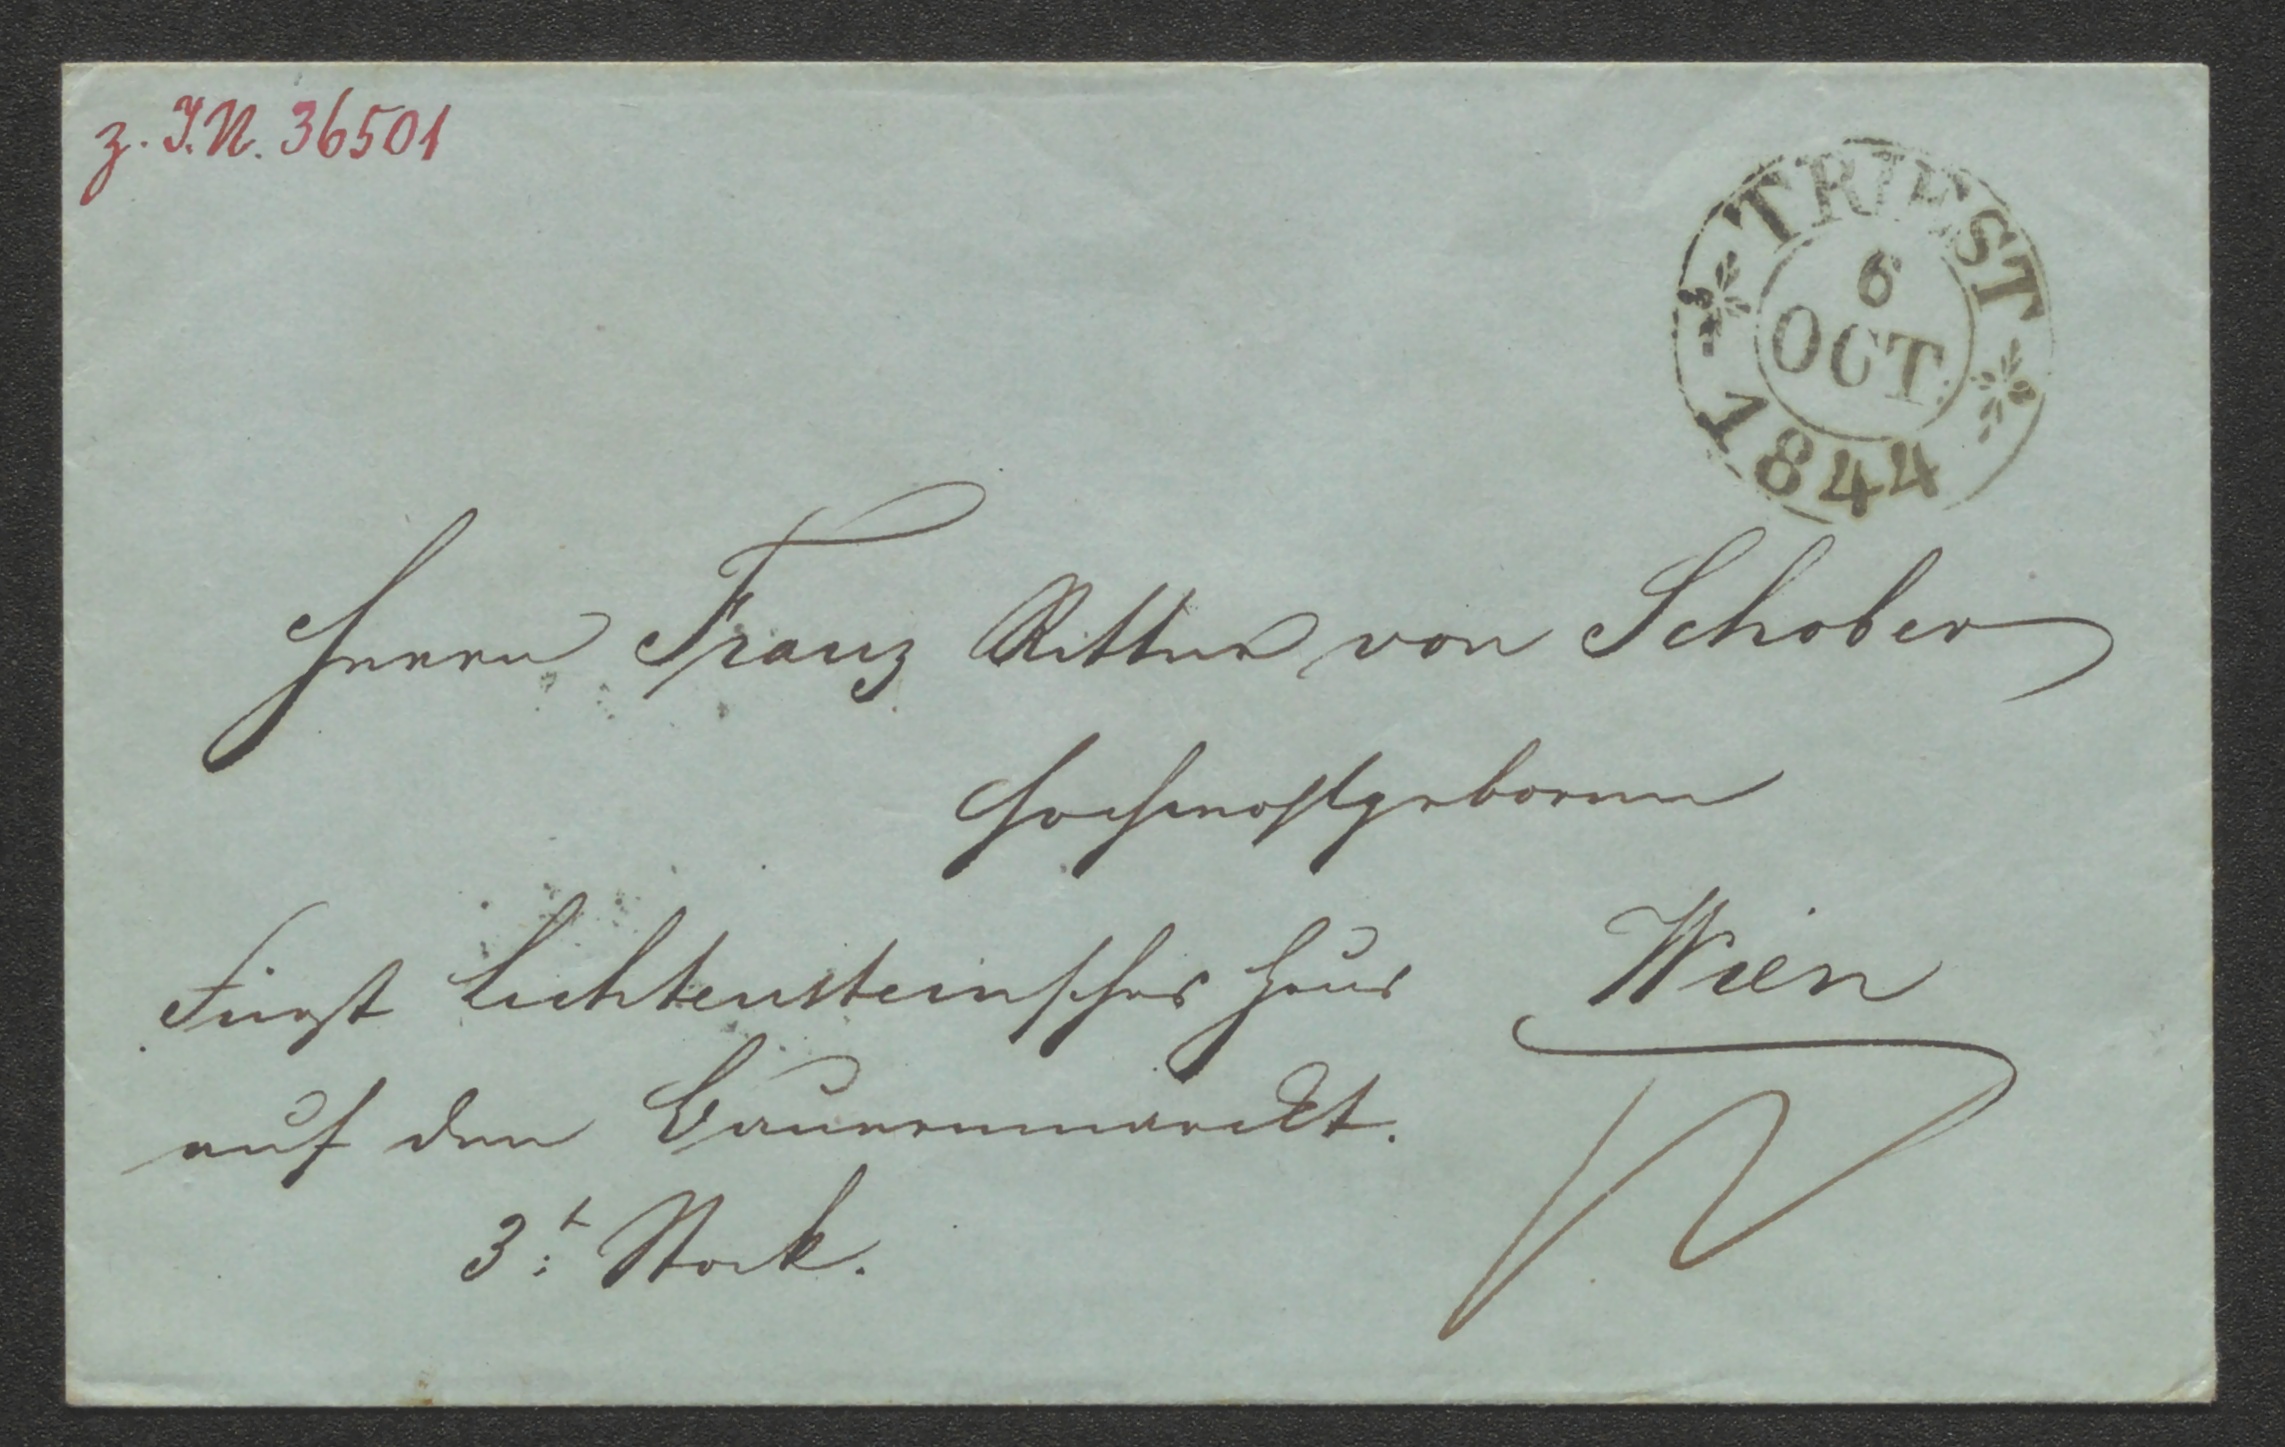 z. I.N. 36501
TRIEST
6
OCT.
1844
Herrn Franz Ritter von Schober
Hochwohlgeboren
Fürst Lichtensteinsches Haus
Wien
auf dem Bauernmarckt.
3t. Stock.